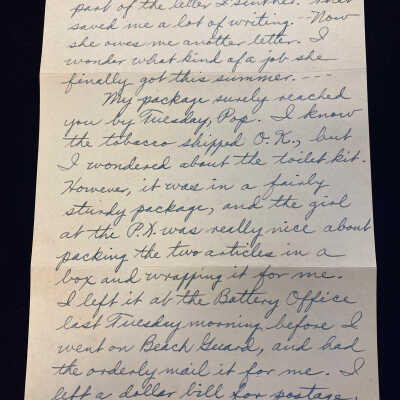 part of the letter I
saved me a lot of writing. -- Now
she owes me another letter. I
wonder what kind of a job she
finally got this summer. ---
My package surely reached
you by Tuesday, Pop. I know
the tobacco shipped O.K., but
I wondered about the toilet kit.
However, it was in a fairly
sturdy package, and the girl
at the P.X. was really nice about
packing the two articles in a
box and wrapping it for me.
I left it at the Battery Office
last Tuesday morning, before I
went on Beach Guard, and had
the orderly mail it for me. I
left a dollar bill for postage.